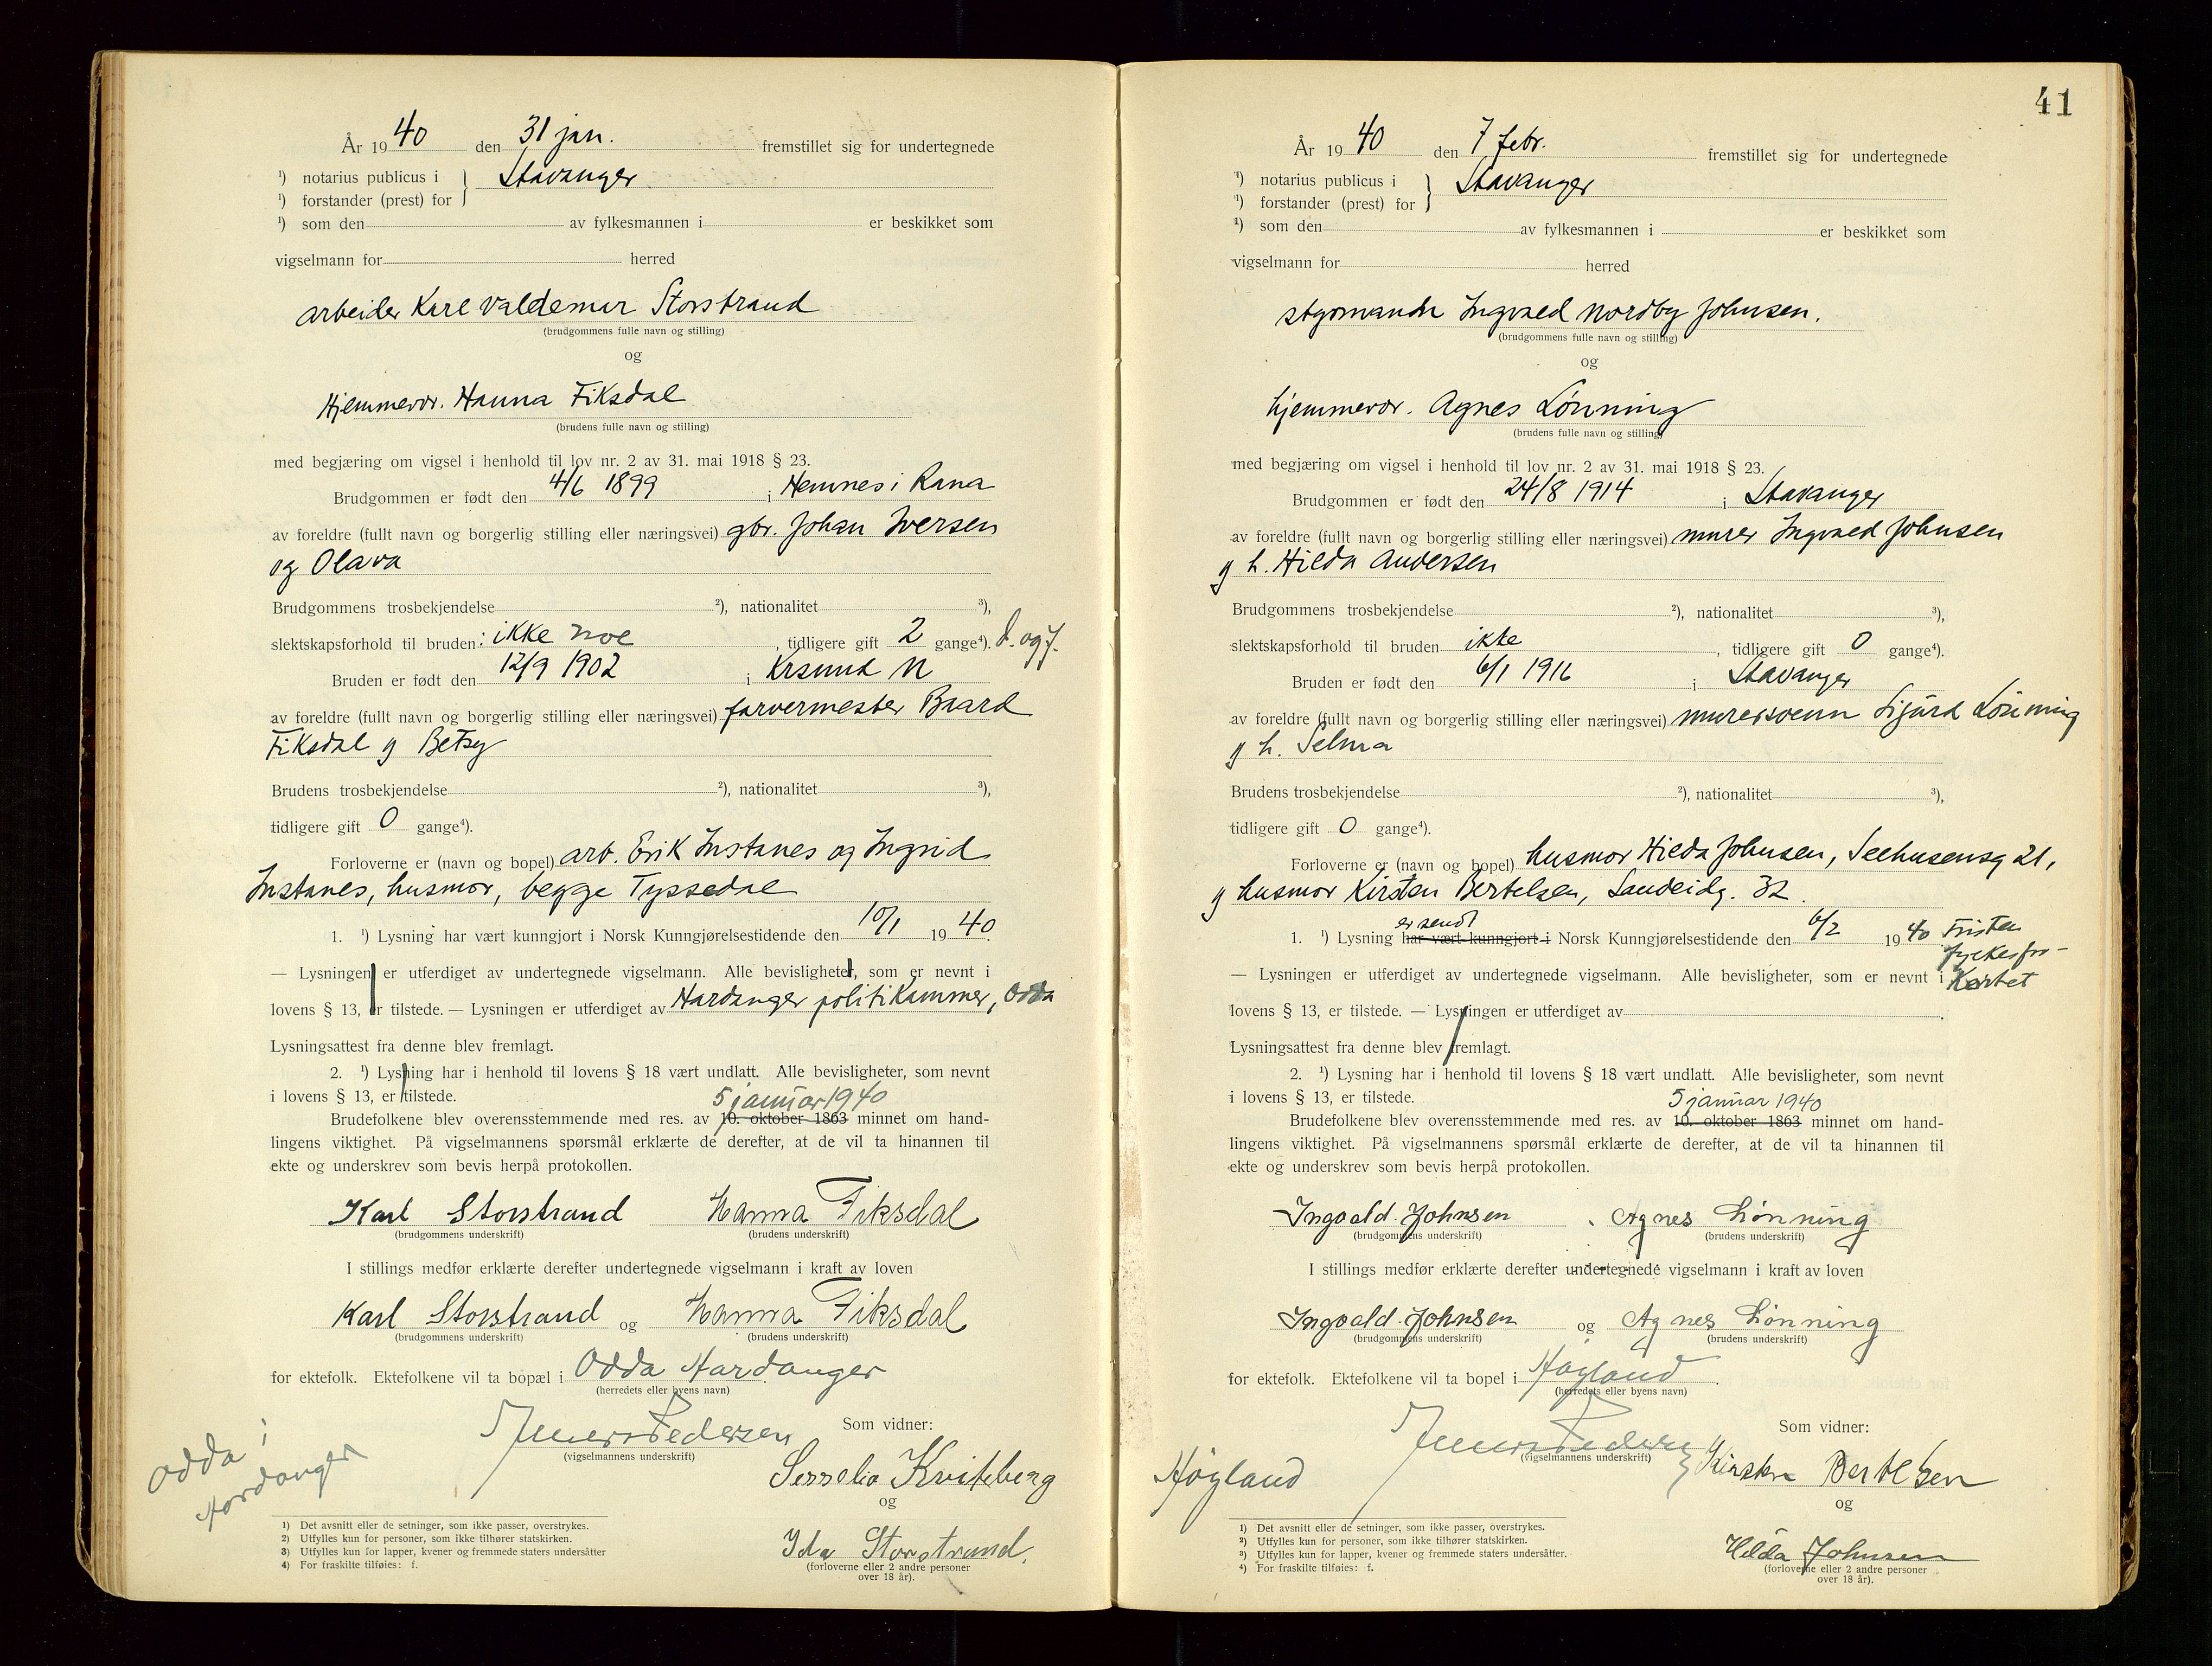 År 1940 den 31 jan. fremstillet sig for undertegnede
¹) notarius publicus i } Stavanger
¹) forstander (prest) for
¹) som den av fylkesmannen i er beskikket som
vigselmann for herred
arbeider Karl Valdemar Storstrand
(brudgommens fulle navn og stilling)
og
Hjemmevr. Hanna Fiksdal
(brudens fulle navn og stilling)
med begjæring om vigsel i henhold til lov nr. 2 av 31. mai 1918 § 23.
Brudgommen er født den 4/6 1899 i Hemnes i Rana
av foreldre (fullt navn og borgerlig stilling eller næringsvei) gbr. Johan Iversen
og Olava
Brudgommens trosbekjendelse ²), nationalitet ³),
slektskapsforhold til bruden: ikke noe, tidligere gift 2 gange⁴). d. og f.
Bruden er født den 12/9 1902 i Krsund N
av foreldre (fullt navn og borgerlig stilling eller næringsvei) farvermester Baard
Fiksdal og Betsy
Brudens trosbekjendelse ²), nationalitet ³),
tidligere gift 0 gange⁴).
Forloverne er (navn og bopel) arb. Erik Instanes og Ingrid
Instanes, husmor, begge Tyssedal
1. ¹) Lysning har vært kunngjort i Norsk Kunngjørelsestidende den 10/1 1940.
— Lysningen er utferdiget av undertegnede vigselmann. Alle bevisligheter, som er nevnt i
lovens § 13, er tilstede. — Lysningen er utferdiget av Hardanger politikammer, Odda
Lysningsattest fra denne blev fremlagt.
2. ¹) Lysning har i henhold til lovens § 18 vært undlatt. Alle bevisligheter, som nevnt
i lovens § 13, er tilstede.
5 januar 1940
Brudefolkene blev overensstemmende med res. av 10. oktober 1863 minnet om hand-
lingens viktighet. På vigselmannens spørsmål erklærte de derefter, at de vil ta hinannen til
ekte og underskrev som bevis herpå protokollen.
Karl Storstrand Hanna Fiksdal
(brudgommens underskrift) (brudens underskrift)
I stillings medfør erklærte derefter undertegnede vigselmann i kraft av loven
Karl Storstrand og Hanna Fiksdal
(brudgommens underskrift) (brudens underskrift)
for ektefolk. Ektefolkene vil ta bopæl i Odda Hardanger
(herredets eller byens navn)
Som vidner:
Pedersen
(vigselmannens underskrift)
Odda i
Hardanger
Kviteberg
og
Ida Storstrand.
(forloverne eller 2 andre personer
over 18 år).
1) Det avsnitt eller de setninger, som ikke passer, overstrykes.
2) Utfylles kun for personer, som ikke tilhører statskirken.
3) Utfylles kun for lapper, kvener og fremmede staters undersåtter
4) For fraskilte tilføies: f.
41
År 1940 den 7 febr. fremstillet sig for undertegnede
¹) notarius publicus i } Stavanger
¹) forstander (prest) for
¹) som den av fylkesmannen i er beskikket som
vigselmann for herred
styrmandn Ingvald Nordby Johnsen.
(brudgommens fulle navn og stilling)
og
hjemmevr. Agnes Lönning
(brudens fulle navn og stilling)
med begjæring om vigsel i henhold til lov nr. 2 av 31. mai 1918 § 23.
Brudgommen er født den 24/8 1914 i Stavanger
av foreldre (fullt navn og borgerlig stilling eller næringsvei) murer Ingvald Johnsen
og h. Hilda Andersen
Brudgommens trosbekjendelse ²), nationalitet ³),
slektskapsforhold til bruden ikke, tidligere gift 0 gange⁴).
Bruden er født den 6/1 1916 i Stavanger
av foreldre (fullt navn og borgerlig stilling eller næringsvei) murersvenn Sigurd Lönning
og h. Selma
Brudens trosbekjendelse ²), nationalitet ³),
tidligere gift 0 gange⁴).
Forloverne er (navn og bopel) husmor Hilda Johnsen, Seehusensg 21,
og husmor Kirsten Bertelsen, Sandeidg. 32.
er sendt
1. ¹) Lysning har vært kunngjort i Norsk Kunngjørelsestidende den 6/2 1940 Fristen
— Lysningen er utferdiget av undertegnede vigselmann. Alle bevisligheter, som er nevnt i fylkesfor-
kortet
lovens § 13, er tilstede. — Lysningen er utferdiget av
Lysningsattest fra denne blev fremlagt.
2. ¹) Lysning har i henhold til lovens § 18 vært undlatt. Alle bevisligheter, som nevnt
i lovens § 13, er tilstede.
5 januar 1940
Brudefolkene blev overensstemmende med res. av 10. oktober 1863 minnet om hand-
lingens viktighet. På vigselmannens spørsmål erklærte de derefter, at de vil ta hinannen til
ekte og underskrev som bevis herpå protokollen.
Ingvald Johnsen Agnes Lønning
(brudgommens underskrift) (brudens underskrift)
I stillings medfør erklærte derefter undertegnede vigselmann i kraft av loven
Ingvald Johnsen og Agnes Lønning
(brudgommens underskrift) (brudens underskrift)
for ektefolk. Ektefolkene vil ta bopel i Høyland.
(herredets eller byens navn)
Som vidner:
(vigselmannens underskrift)
Høyland
Kirsten Bertelsen
og
Hilda Johnsen
(forloverne eller 2 andre personer
over 18 år).
1) Det avsnitt eller de setninger, som ikke passer, overstrykes.
2) Utfylles kun for personer, som ikke tilhører statskirken.
3) Utfylles kun for lapper, kvener og fremmede staters undersåtter.
4) For fraskilte tilføies: f.